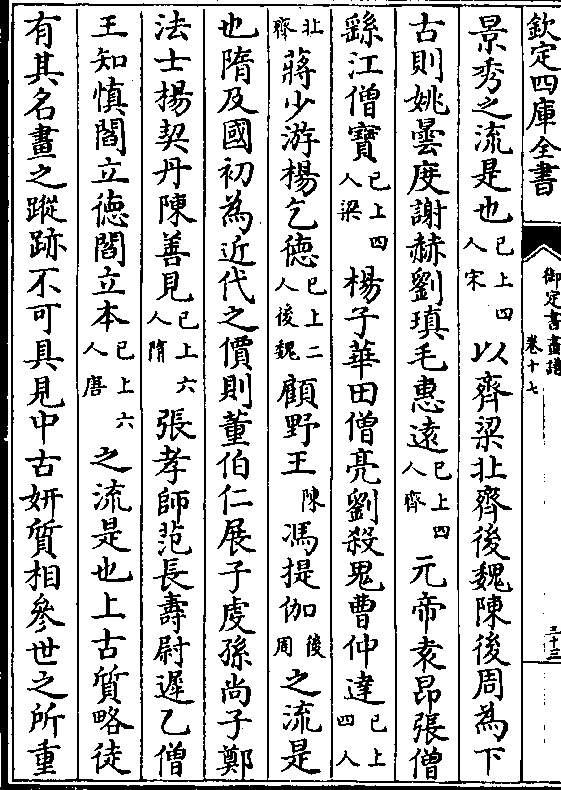 欽定四庫全書
御定書畫譜
卷十七
三十三
景秀之流是也已上四人宋以齊梁北齊後魏陳後周為下
古則姚曇度謝赫劉瑱毛惠遠已上四人齊元帝袁昂張僧
繇江僧寶已上四人梁楊子華田僧亮劉殺鬼曹仲達已上四人
北齊蔣少游楊乞德已上二人後魏顧野王陳馮提伽後周之流是
也隋及國初為近代之價則董伯仁展子虔孫尚子鄭
法士楊契丹陳善見已上六人隋張孝師范長壽尉遲乙僧
王知慎閻立德閻立本已上六人唐之流是也上古質略徒
有其名畫之蹤跡不可具見中古妍質相參世之所重